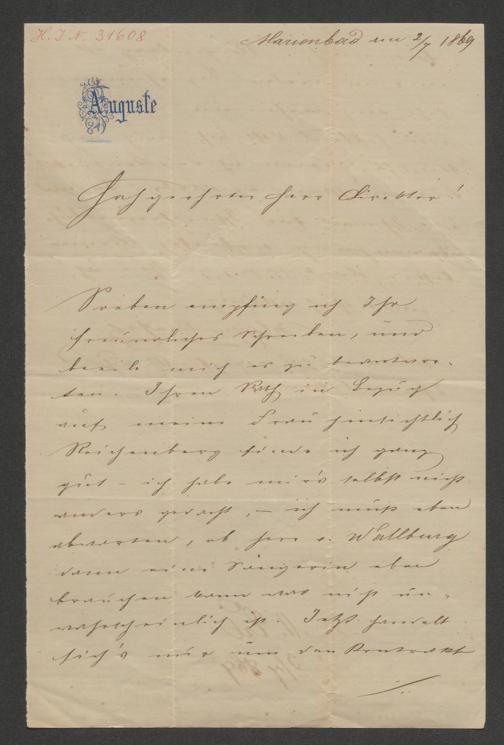 H.I.N. 31608
Marienbad am 2/7 1869
Auguste
Hochgeehrter Herr Direktor!
Soeben empfing ich Ihr
freundliches Schreiben, und
beeile mich es zu beantwor-
ten. Ihren Rath in Bezug
auf meine Frau hinsichtlich
Reichenberg finde ich ganz
gut – ich habe mir's selbst nicht
anders gedacht, – ich muß eben
abwarten, ob Herr v. Wallburg
dann eine Sängerin eben
brauchen kann was nicht un-
wahrscheinlich ist. Jetzt handelt
sich's nur um den Kontrakt